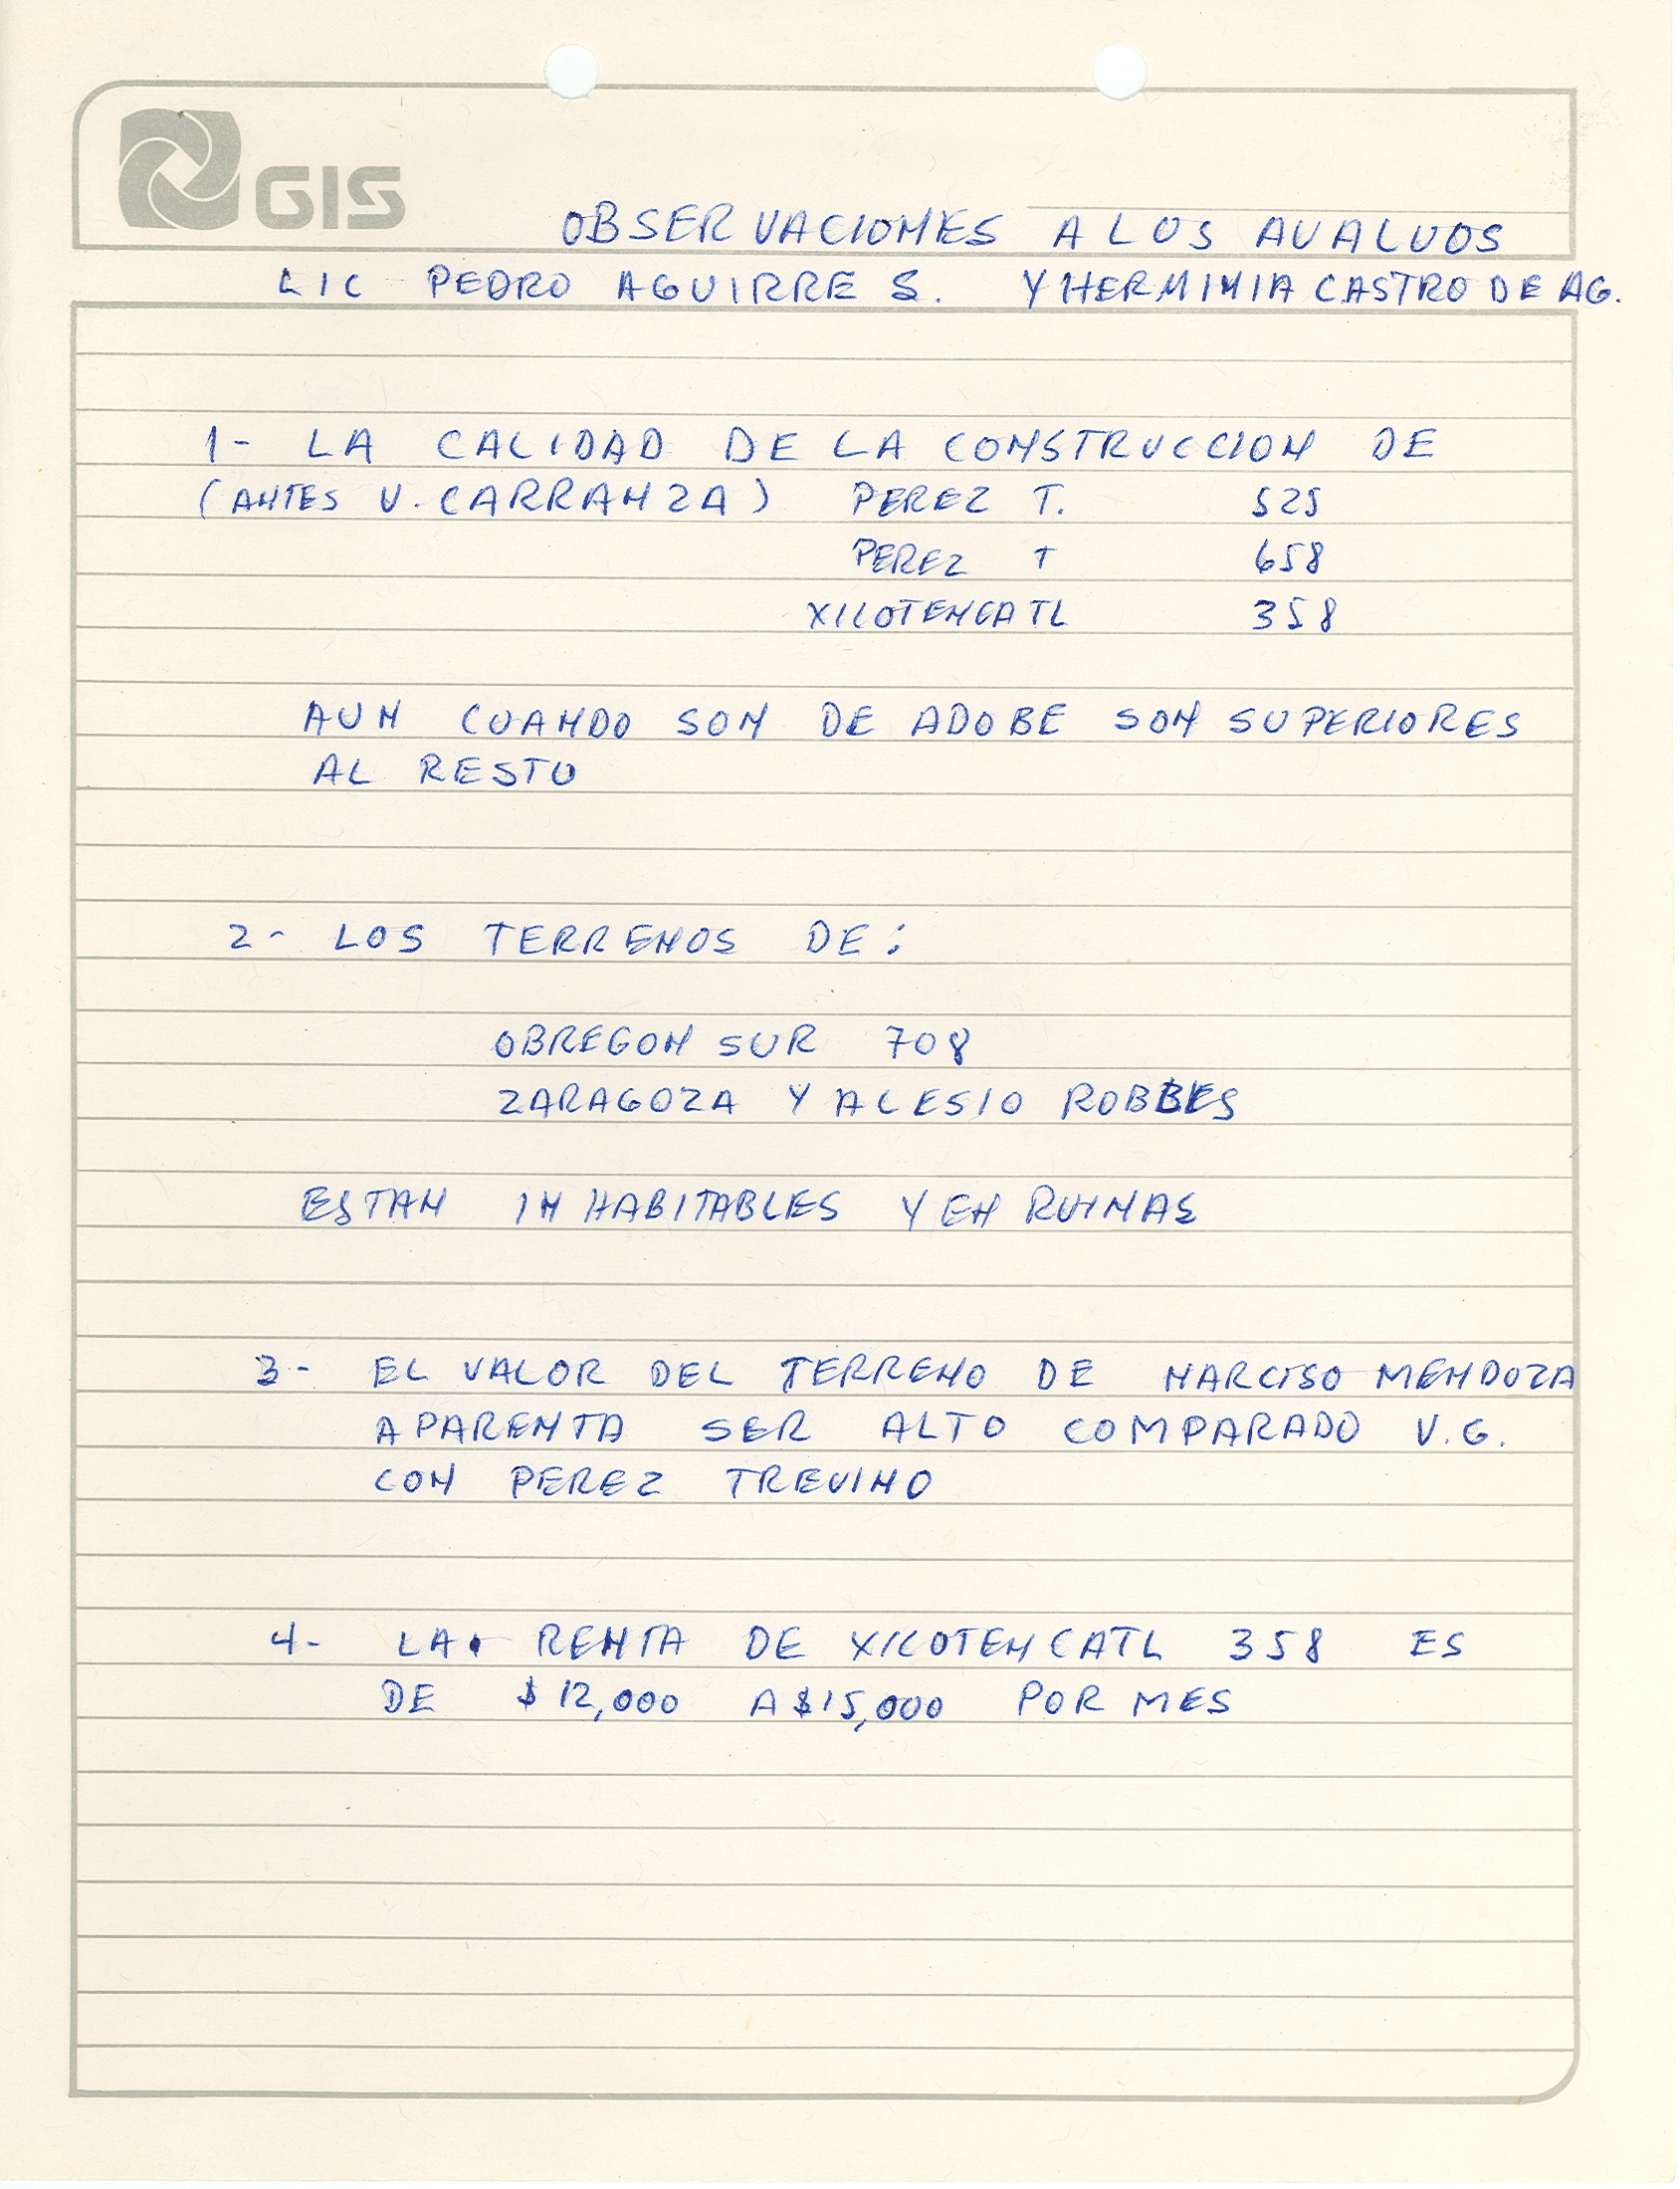 GIS
OBSERVACIONES A LOS AVALUOS
LIC PEDRO AGUIRRE S. Y HERMINIA CASTRO DE AG.
1- LA CALIDAD DE LA CONSTRUCCION DE
(ANTES V. CARRANZA) PEREZ T. 525
PEREZ T 658
XILOTENCATL 358
AUN CUANDO SON DE ADOBE SON SUPERIORES
AL RESTO
2- LOS TERRENOS DE:
OBREGON SUR 708
ZARAGOZA Y ALESIO ROBBES
ESTAN INHABITABLES Y EN RUINAS
3- EL VALOR DEL TERRENO DE NARCISO MENDOZA
APARENTA SER ALTO COMPARADO V.G.
CON PEREZ TREVINO
4- LA RENTA DE XILOTENCATL 358 ES
DE $12,000 A $15,000 POR MES